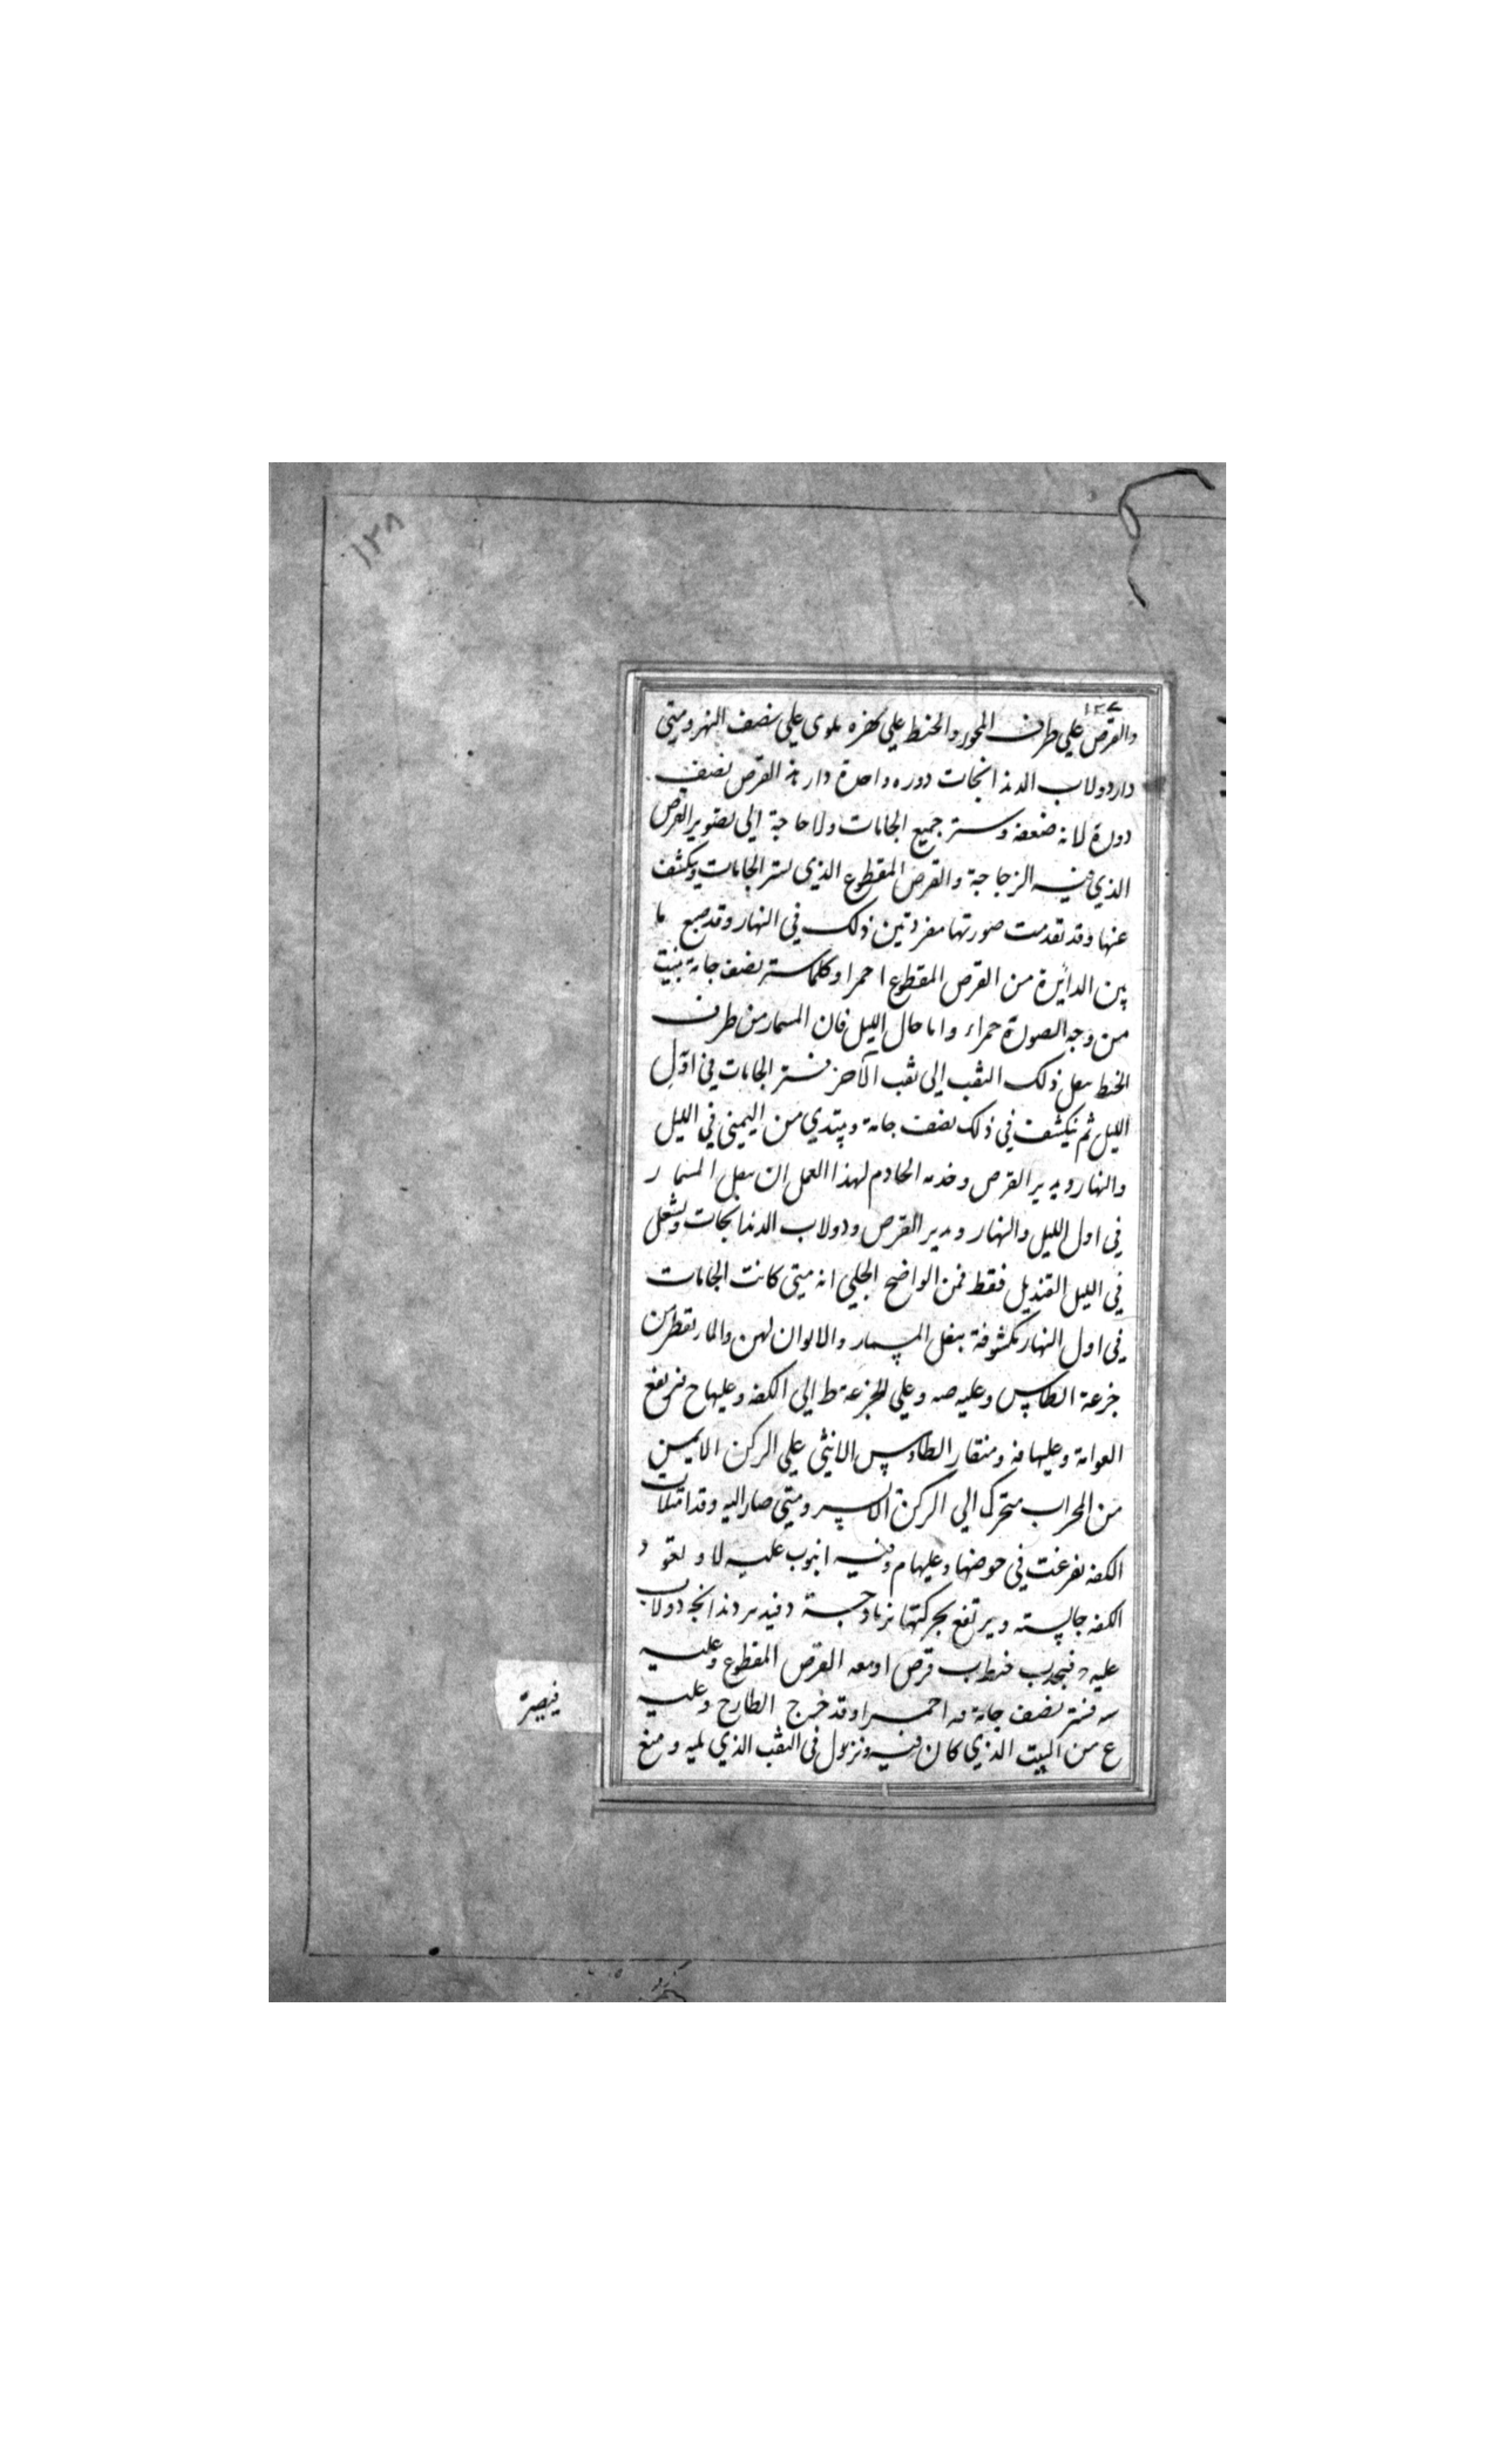 ١٢٨
١٢٧
والقرص علي طرف المحور والخيط علي كفره ملوى علي نصف النهر ومتي
دار دولاب الدندانجات دوره واحدة دار هذ القرص نصف
دورة لانه ضعفه وستر جميع الجامات ولا حاجة الي تصوير القرص
الذي فيه الزجاجة والقرص المقطوع الذي يستر الجامات ويكشف
عنها وقد تقدمت صورتها مفردتين ذلك في النهار وقد صبع ما
بين الدايرة من القرص المقطوع احمرا وكلما ستر نصف جامة بنيت
من وجه الصورة حمراء واما حال الليل فان المسمار من طرف
الخيط ينقل ذلك الثقب الي ثقب الآخر فتستر الجامات في اوّل
الليل ثم ينكشف في ذلك نصف جامة ويبتدي من اليمني في الليل
والنهار ويدير القرص وخدمه الخادم لهذا العمل ان ينقل المسمار
في اول الليل والنهار ويدير القرص ودولاب الدندانجات ويشعل
في الليل القنديل فقط فمن الواضح الجلي انه متي كانت الجامات
في اول النهار مكشوفة بنقل المسمار والالوان لهن والماء يقطر من
جزعة الطاس وعليه صه وعلي الجزعة ط الي الكفه وعليها ح فترتفع
العوامة وعليها فه ومنقار الطاوس الانثي علي الركن الايمن
من المحراب متحرك الي الركن الايسر ومتي صار اليه وقد امتلات
الكفه تفرغت في حوضها وعليها م وفيه انبوب عليه لا و تعود
الكفه جالسته ويرتفع بحركتها دندانجة دولاب
عليه قرص ا ومعه القرص المقطوع وعليه
سه فستر نصف جامة مه احمرا وقد خرج الطارح وعليه
ع من البيت الذي كان فيه ونزول في الثقب الذي يليه ومنع
فيصيرة